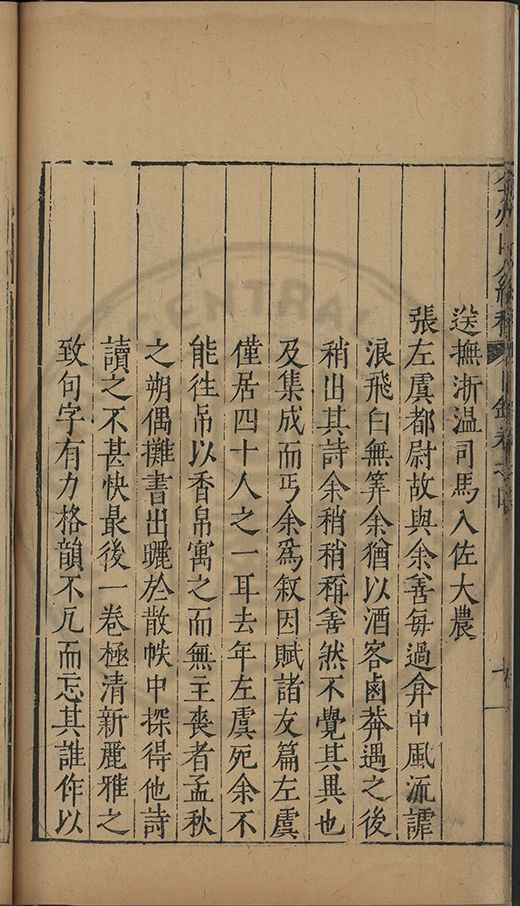 送撫浙溫司馬入佐大農
張左虞都尉故與余善每過弇中風流謔
浪飛白無筭余猶以酒客鹵莽遇之後
稍出其詩余稍稍稱善然不覺其異也
及集成而丐余爲叙因賦諸友篇左虞
僅居四十人之一耳去年左虞死余不
能徃吊以香帛寓之而無主喪者孟秋
之朔偶攤書出曬於散帙中探得他詩
讀之不甚快最後一卷極清新麗雅之
致句字有力格韻不凡而忘其誰作以